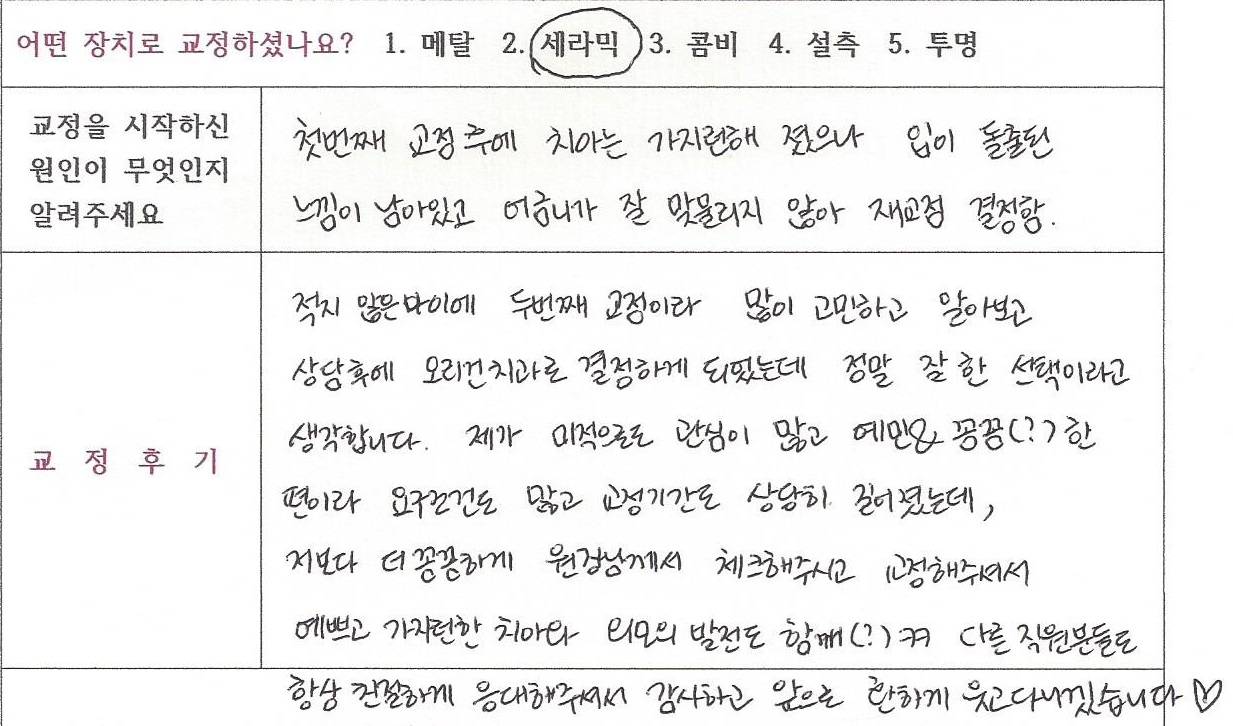 어떤 장치로 교정하셨나요? 1. 메탈 2. 세라믹 3. 콤비 4. 설측 5. 투명
교정을 시작하신
원인이 무엇인지
알려주세요
첫번째 교정후에 치아는 가지런해 졌으나 입이 돌출된
느낌이 남아있고 어금니가 잘 맞물리지 않아 재교정 결정함.
교 정 후 기
적지 않은 나이에 두번째 교정이라 많이 고민하고 알아보고
상담후에 오리건치과로 결정하게 되었는데 정말 잘 한 선택이라고
생각합니다. 제가 미적으로도 관심이 많고 예민& 꼼꼼(?)한
편이라 요구조건도 많고 교정기간도 상당히 길어졌는데,
저보다 더 꼼꼼하게 원장님께서 체크해주시고 교정해주셔서
예쁘고 가지런한 치아와 외모의 발전도 함께(?) ㅋㅋ 다른 직원분들도
항상 친절하게 응대해주셔서 감사하고 앞으로 환하게 웃고다니겠습니다 ♡